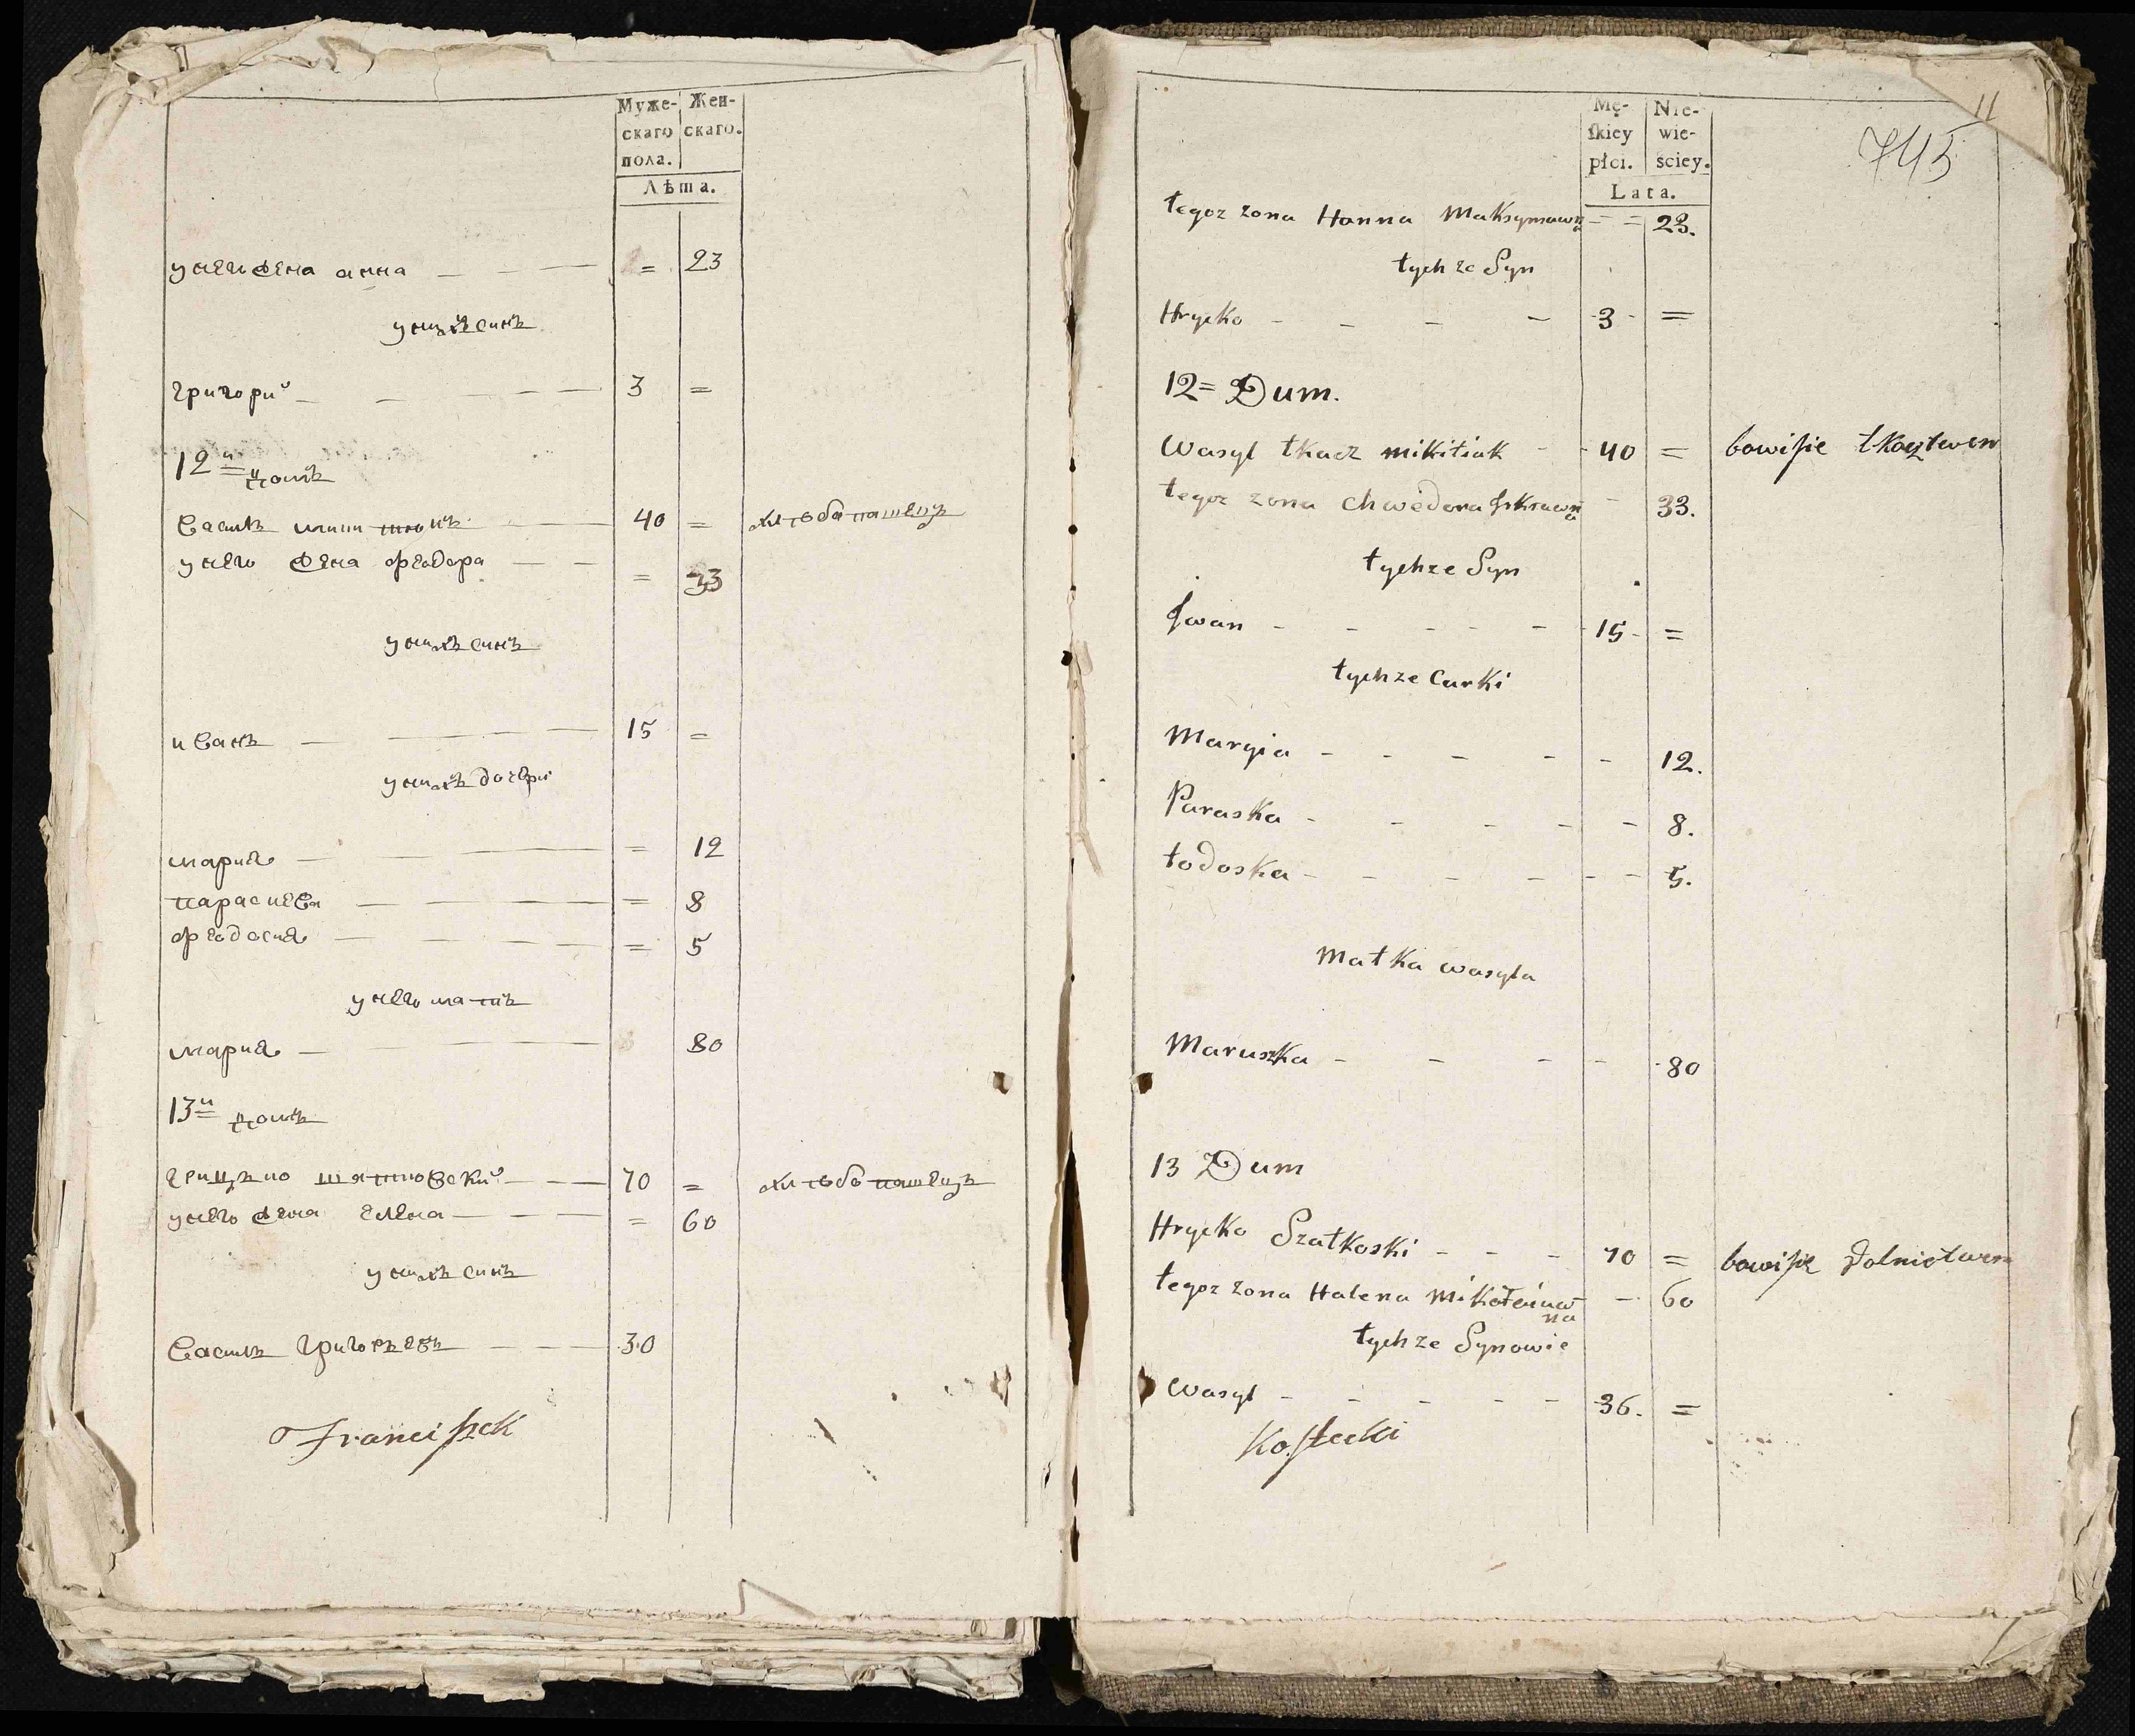 Муже-
скаго
пола.
Жен-
скаго.
Лѣта.
у него жена анна — — — = 23
у нихъ синъ
григорий — — — — 3 =
12й домъ
Василь — 40 = хлѣбопашецъ
у него жена феодора — — = 33
у нихъ синъ
иванъ — — — — 15 =
у нихъ дочери
мария — — — = 12
параскева — — — = 8
феодосия — — — = 5
у него мать
мария — — — 80
13й домъ
грицько шатковский — — 70 = хлѣбопашецъ
у него жена елена — — — = 60
у нихъ синъ
Василь григорьевъ — — — 30
Franciszek
11
745
Mę-
skiey
płci.
Nie-
wie-
ściey.
Lata.
tegoz zona Hanna Maksymawna = = 23.
tychze Syn
Hrycko - - - - 3 - =
12 = Dum.
Wasyl tkacz mikitiak - - 40 = bawisie tkaztwem
tegoz zona Chwedora - 33.
tychze Syn
Jwan - - - - - 15 - =
tychze Curki
Maryia - - - - - 12.
Paraska - - - - - 8.
todoska - - - - - - 5.
Matka wasyla
Maruszka - - - - 80
13 Dum
Hrycko Szatkoski - - - 70 = bawisie Rolnictwem
tegoz zona Halena Mikołaiuwna - 60
tychze Synowie
Wasyl - - - - - 36. =
Kostecki